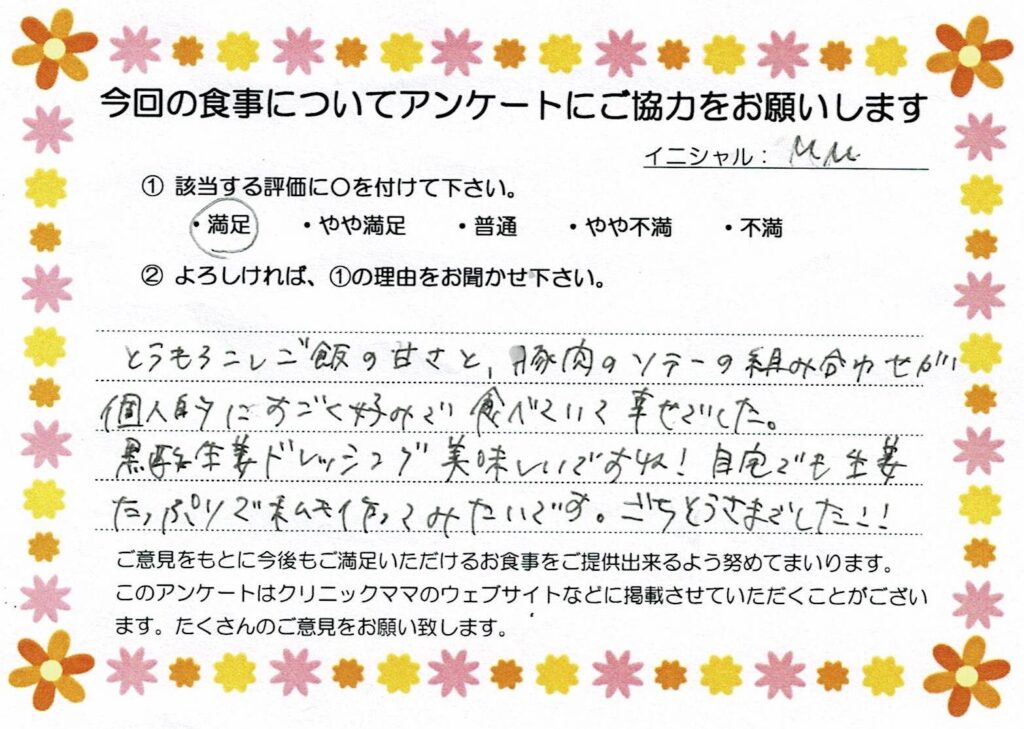 今回の食事についてアンケートにご協力をお願いします
イニシャル： M M
① 該当する評価に〇を付けて下さい。
・満足 ・やや満足 ・普通 ・やや不満 ・不満
② よろしければ、①の理由をお聞かせ下さい。
とうもろこしご飯の甘さと、豚肉のソテーの組み合わせが
個人的にすごく好みで食べていて幸せでした。
黒酢生姜ドレッシング美味しいですね！自宅でも生姜
たっぷりで私も作ってみたいです。ごちそうさまでした!!
ご意見をもとに今後もご満足いただけるお食事をご提供出来るよう努めてまいります。
このアンケートはクリニックママのウェブサイトなどに掲載させていただくことがござい
ます。たくさんのご意見をお願い致します。